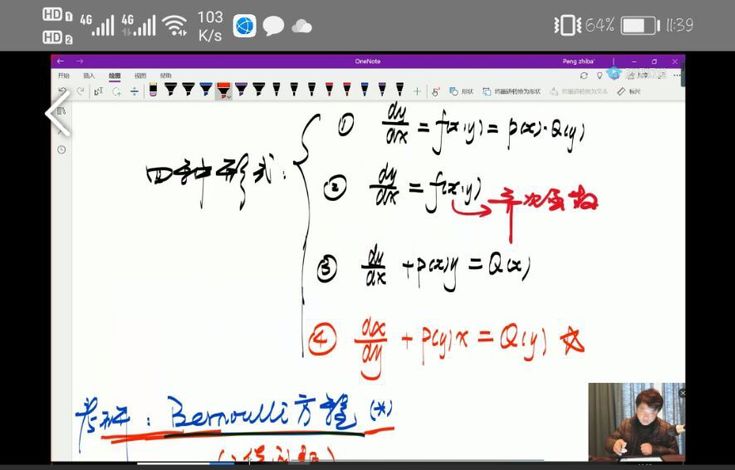 HD 1 4G 4G 103 K/s 64% 11:39
HD 2
OneNote Peng zhiba'
开始 插入 绘图 视图 帮助
形状 将墨迹转换为形状 将墨迹转换为文本 标尺
四种形式:
① dy/dx = f(x·y) = p(x)·Q(y)
② dy/dx = f(x·y) → 齐次函数
③ dy/dx + p(x)y = Q(x)
④ dx/dy + p(y)x = Q(y) ☆
考研: Bernoulli方程(*)